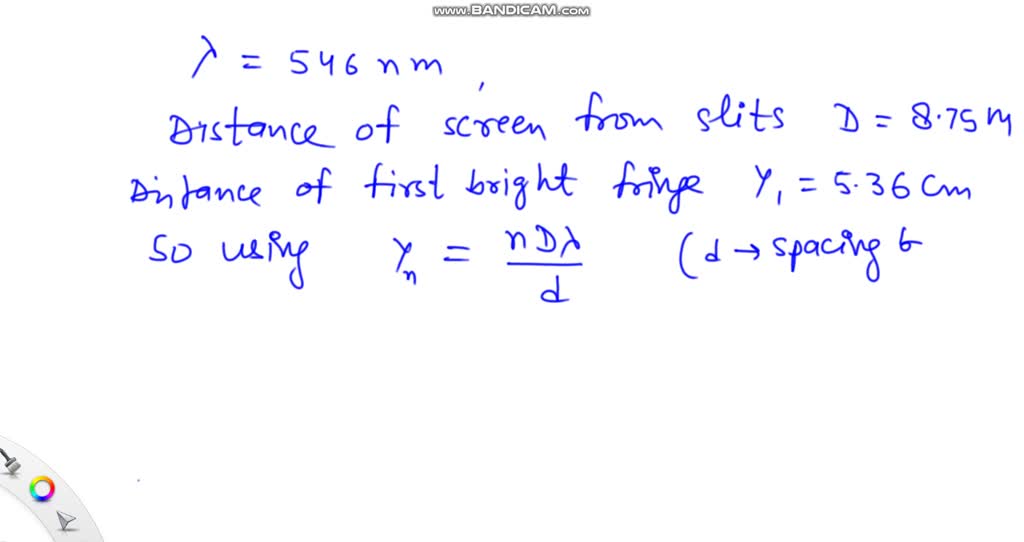 www.BANDICAM.com
λ = 546 nm,
Distance of screen from slits D = 8.75 m
Distance of first bright fringe Y₁ = 5.36 cm
So using Yₙ = nDλ/d (d → spacing b